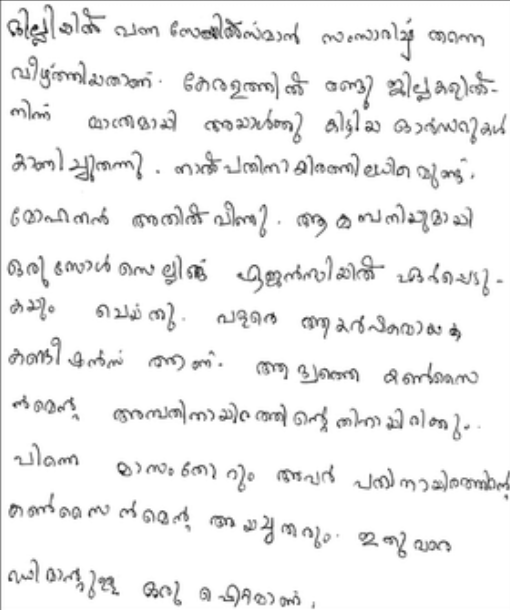 ദില്ലിയിൽ വന്ന സേയിൽസ്മാൻ സംസാരിച്ചു തന്നെ
വീഴ്ത്തിയതാണ്. കേരളത്തിൽ രണ്ടു ജില്ലകളിൽ-
നിന്ന് മാത്രമായി അയാൾക്കു കിട്ടിയ ഓർഡറുകൾ
കാണിച്ചുതന്നു. നാല്പതിനായിരത്തിലധികവുണ്ട്.
മോഹനൻ അതിൽ വീണു. ആ കമ്പനിയുമായി
ഒരു സോൾ സെല്ലിങ്ങ് ഏജൻസിയിൽ ഏർപ്പെടു-
കയും ചെയ്തു. വളരെ ആകർഷകമായ
കണ്ടീഷൻസ് ആണ്. ആദ്യത്തെ കൺസൈ
ൻമെന്റ് അമ്പതിനായിരത്തിന്റെതിനായിരിക്കും.
പിന്നെ മാസംതോറും അവർ പതിനായിരത്തിന്റെ
കൺസൈൻമെന്റ് അയച്ചുതരും. ഇതു വളരെ
ഡിമാന്റുള്ള ഒരു ഫെറിയാണ്.